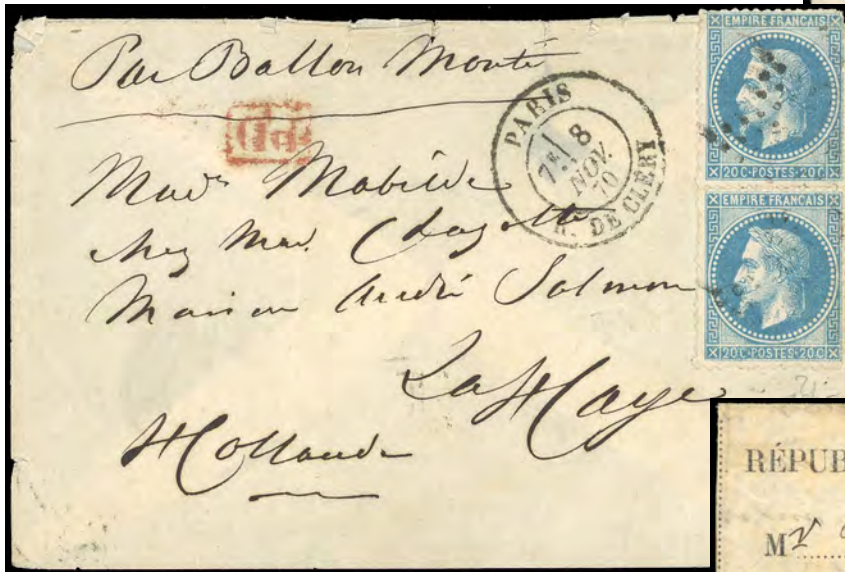 Par Ballon Monté
PD
PARIS
7E
8
NOV.
70
R. DE CLÉRY
EMPIRE FRANÇAIS
20C·POSTES·20C
EMPIRE FRANÇAIS
20C·POSTES·20C
Mad. Mabilde
chez Mad.
Maison André Salmon
La Haye
Hollande
RÉPUB
M